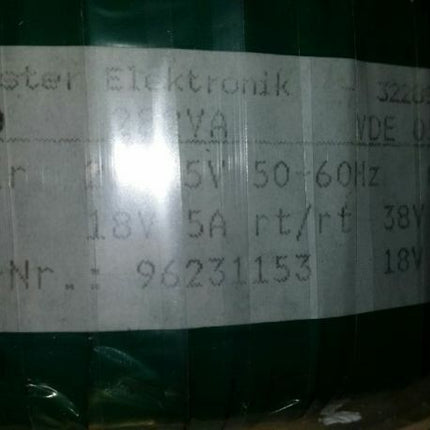 ster Elektronik
VDE
5V 50-60Hz
18V 5A rt/rt 38V
Nr.: 96231153 18V